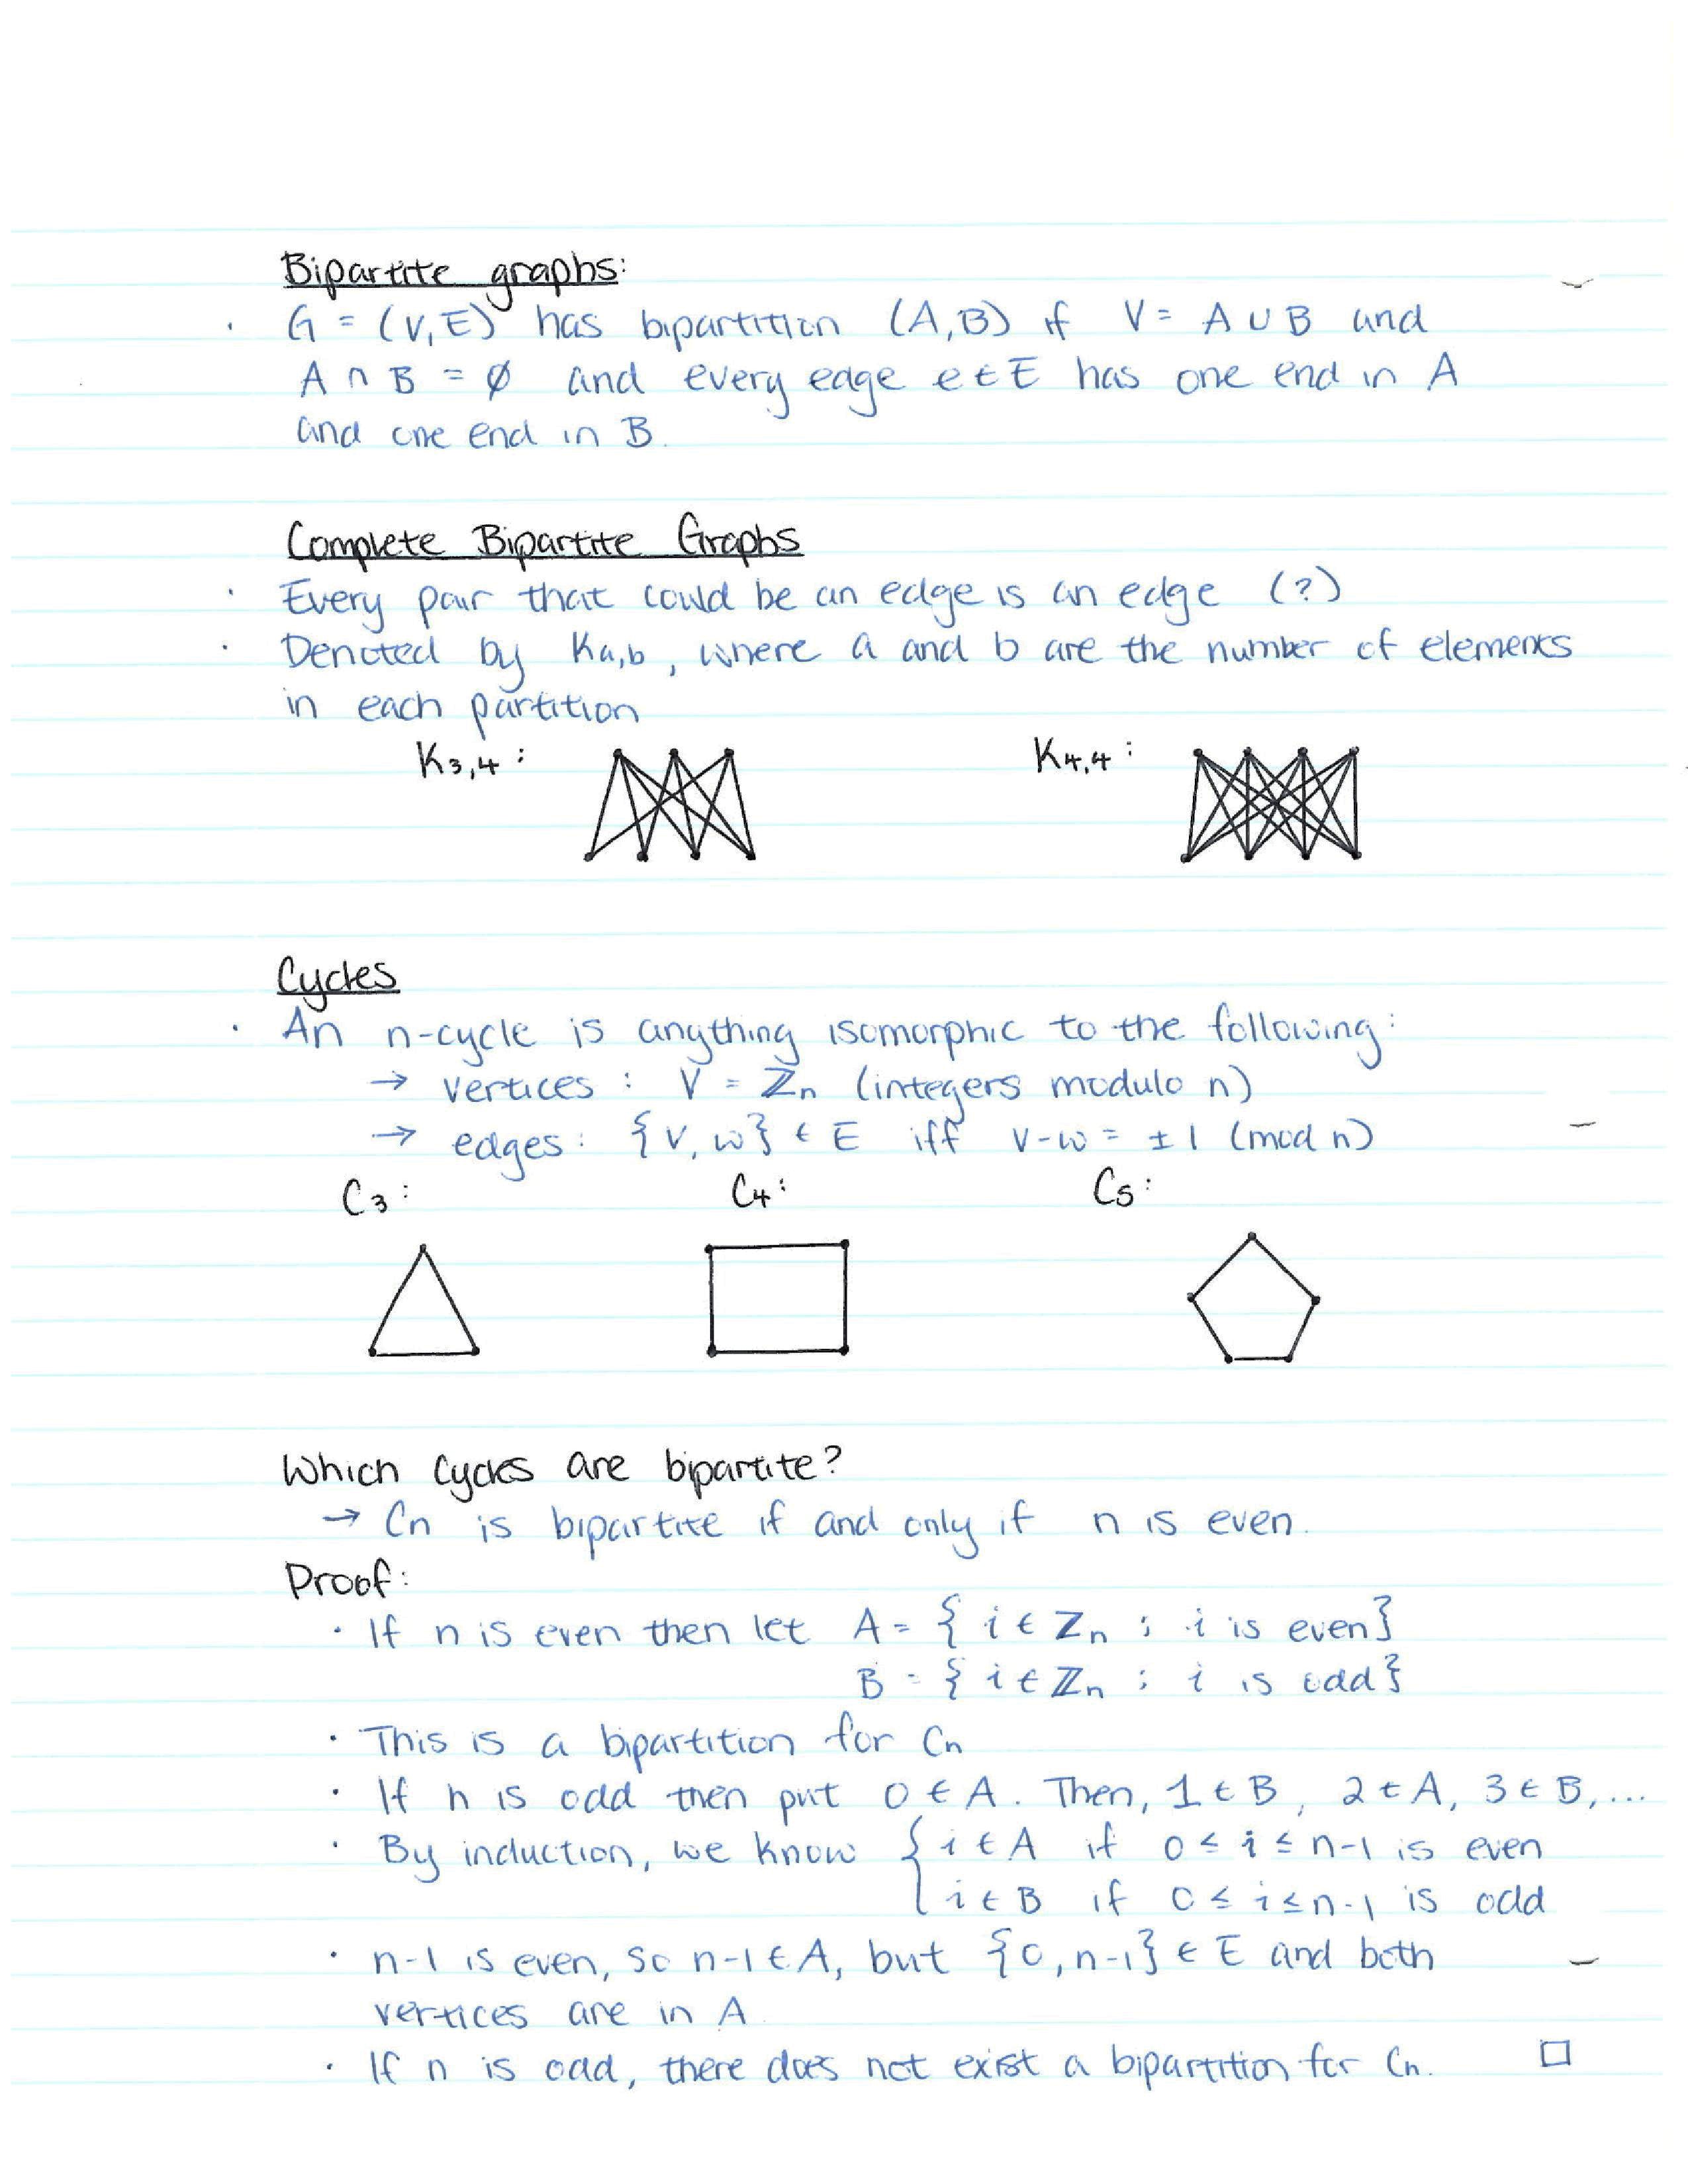 Bipartite graphs:
· G = (V,E) has bipartition (A,B) if V = A ∪ B and
A ∩ B = ∅ and every edge e ∈ E has one end in A
and one end in B.
Complete Bipartite Graphs
· Every pair that could be an edge is an edge (?)
· Denoted by Ka,b, where a and b are the number of elements
in each partition
K3,4: K4,4:
Cycles
· An n-cycle is anything isomorphic to the following:
→ vertices: V = ℤn (integers modulo n)
→ edges: {v, w} ∈ E iff v-w = ±1 (mod n)
C3: C4: C5:
Which cycles are bipartite?
→ Cn is bipartite if and only if n is even.
Proof:
· If n is even then let A = { i ∈ ℤn ; i is even}
B = { i ∈ ℤn ; i is odd}
· This is a bipartition for Cn
· If n is odd then put 0 ∈ A. Then, 1 ∈ B, 2 ∈ A, 3 ∈ B,...
· By induction, we know { i ∈ A if 0 ≤ i ≤ n-1 is even
i ∈ B if 0 ≤ i ≤ n-1 is odd
· n-1 is even, so n-1 ∈ A, but {0, n-1} ∈ E and both
vertices are in A
· If n is odd, there does not exist a bipartition for Cn. □